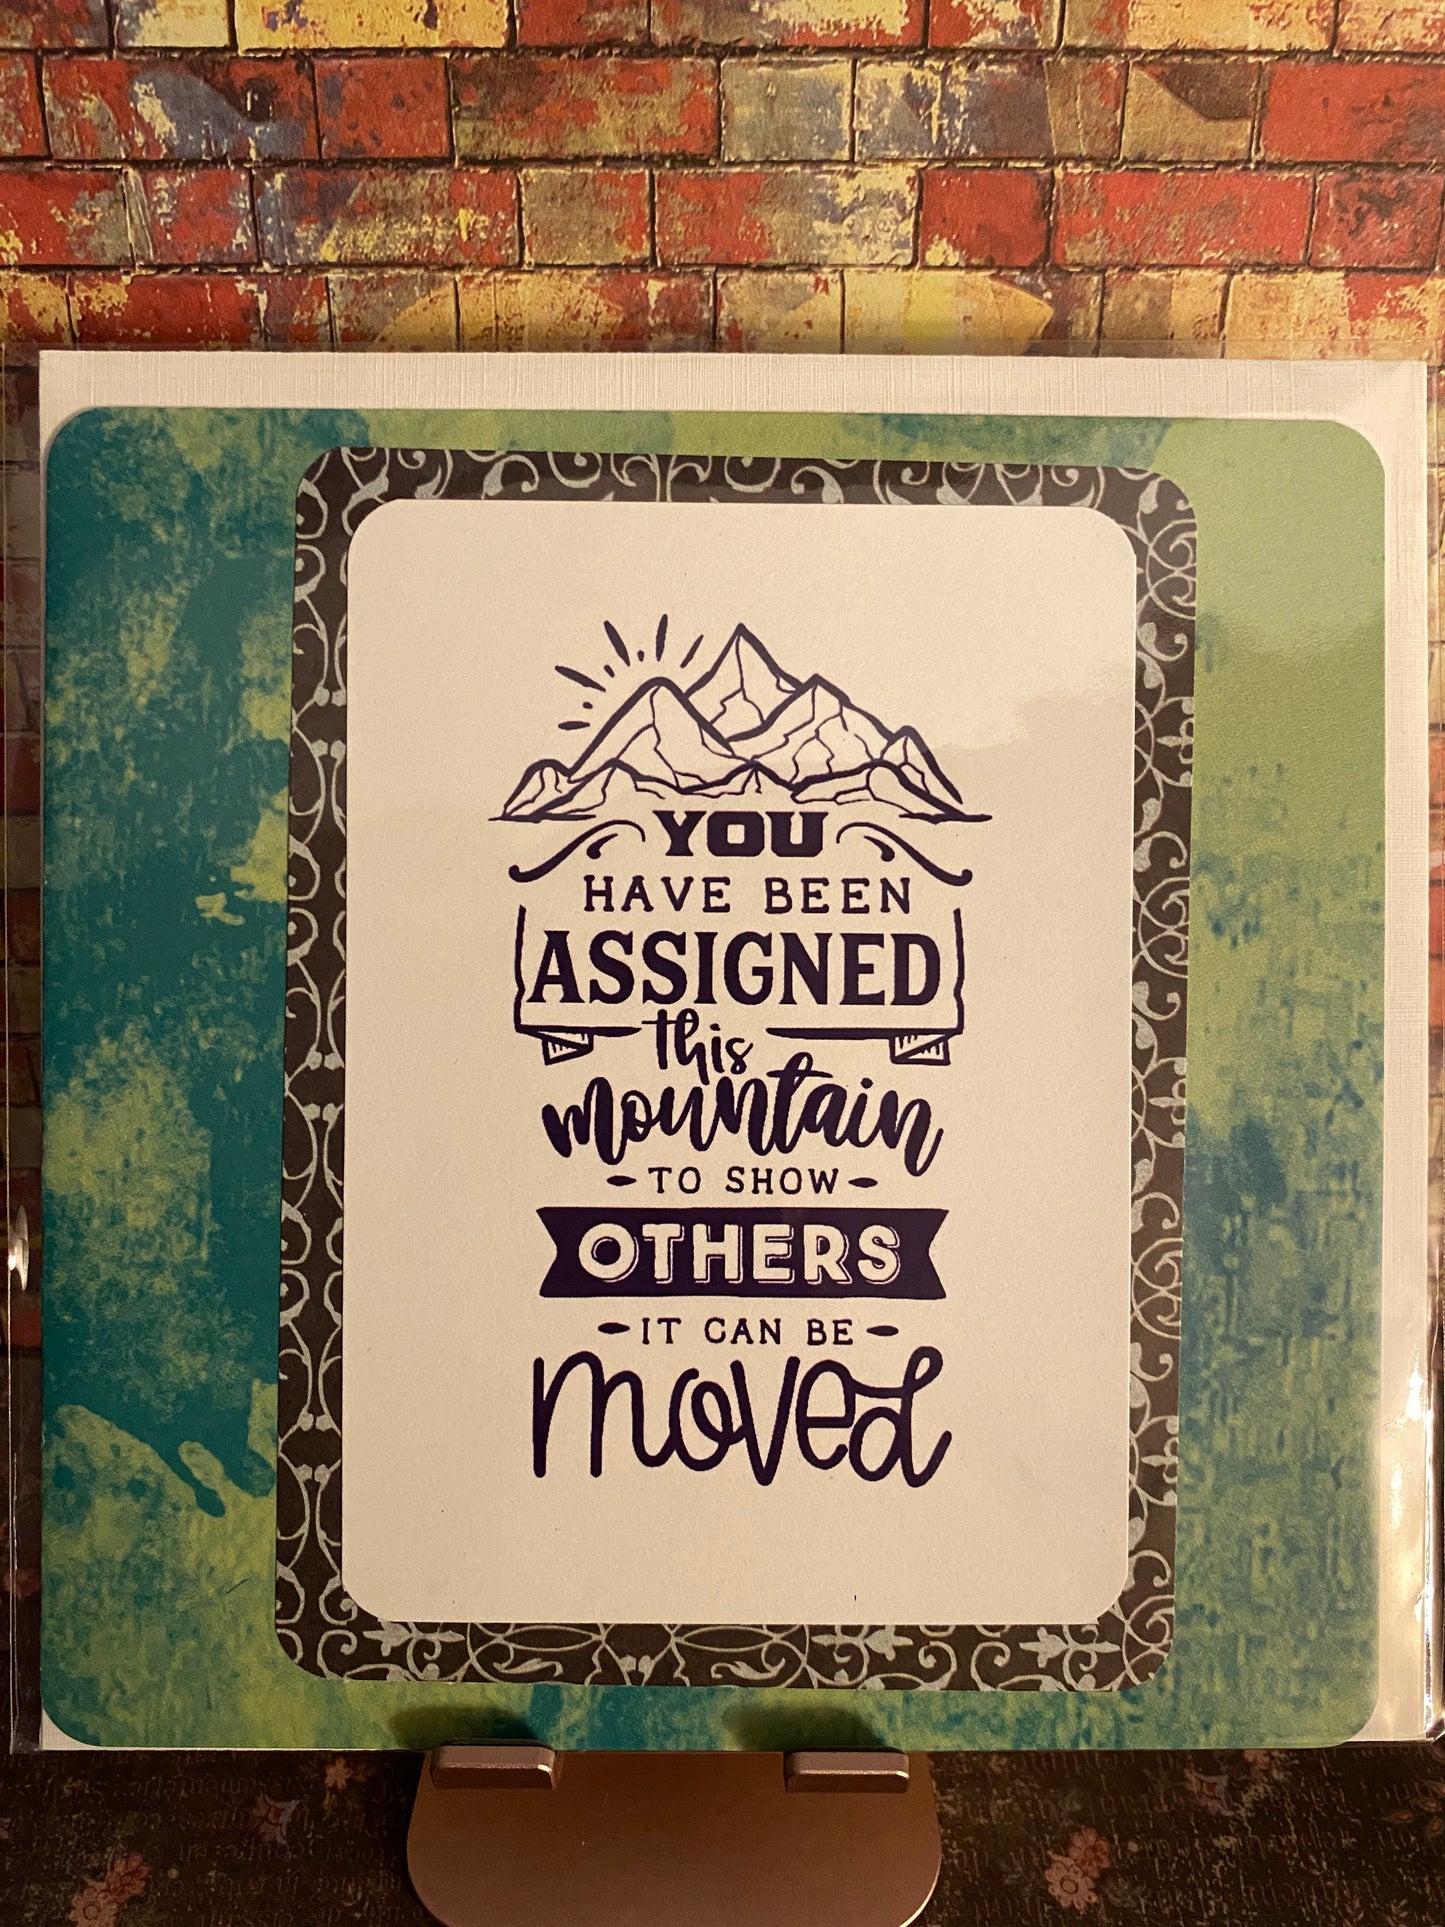 YOU
HAVE BEEN
ASSIGNED
this
mountain
-TO SHOW-
OTHERS
-IT CAN BE-
moved